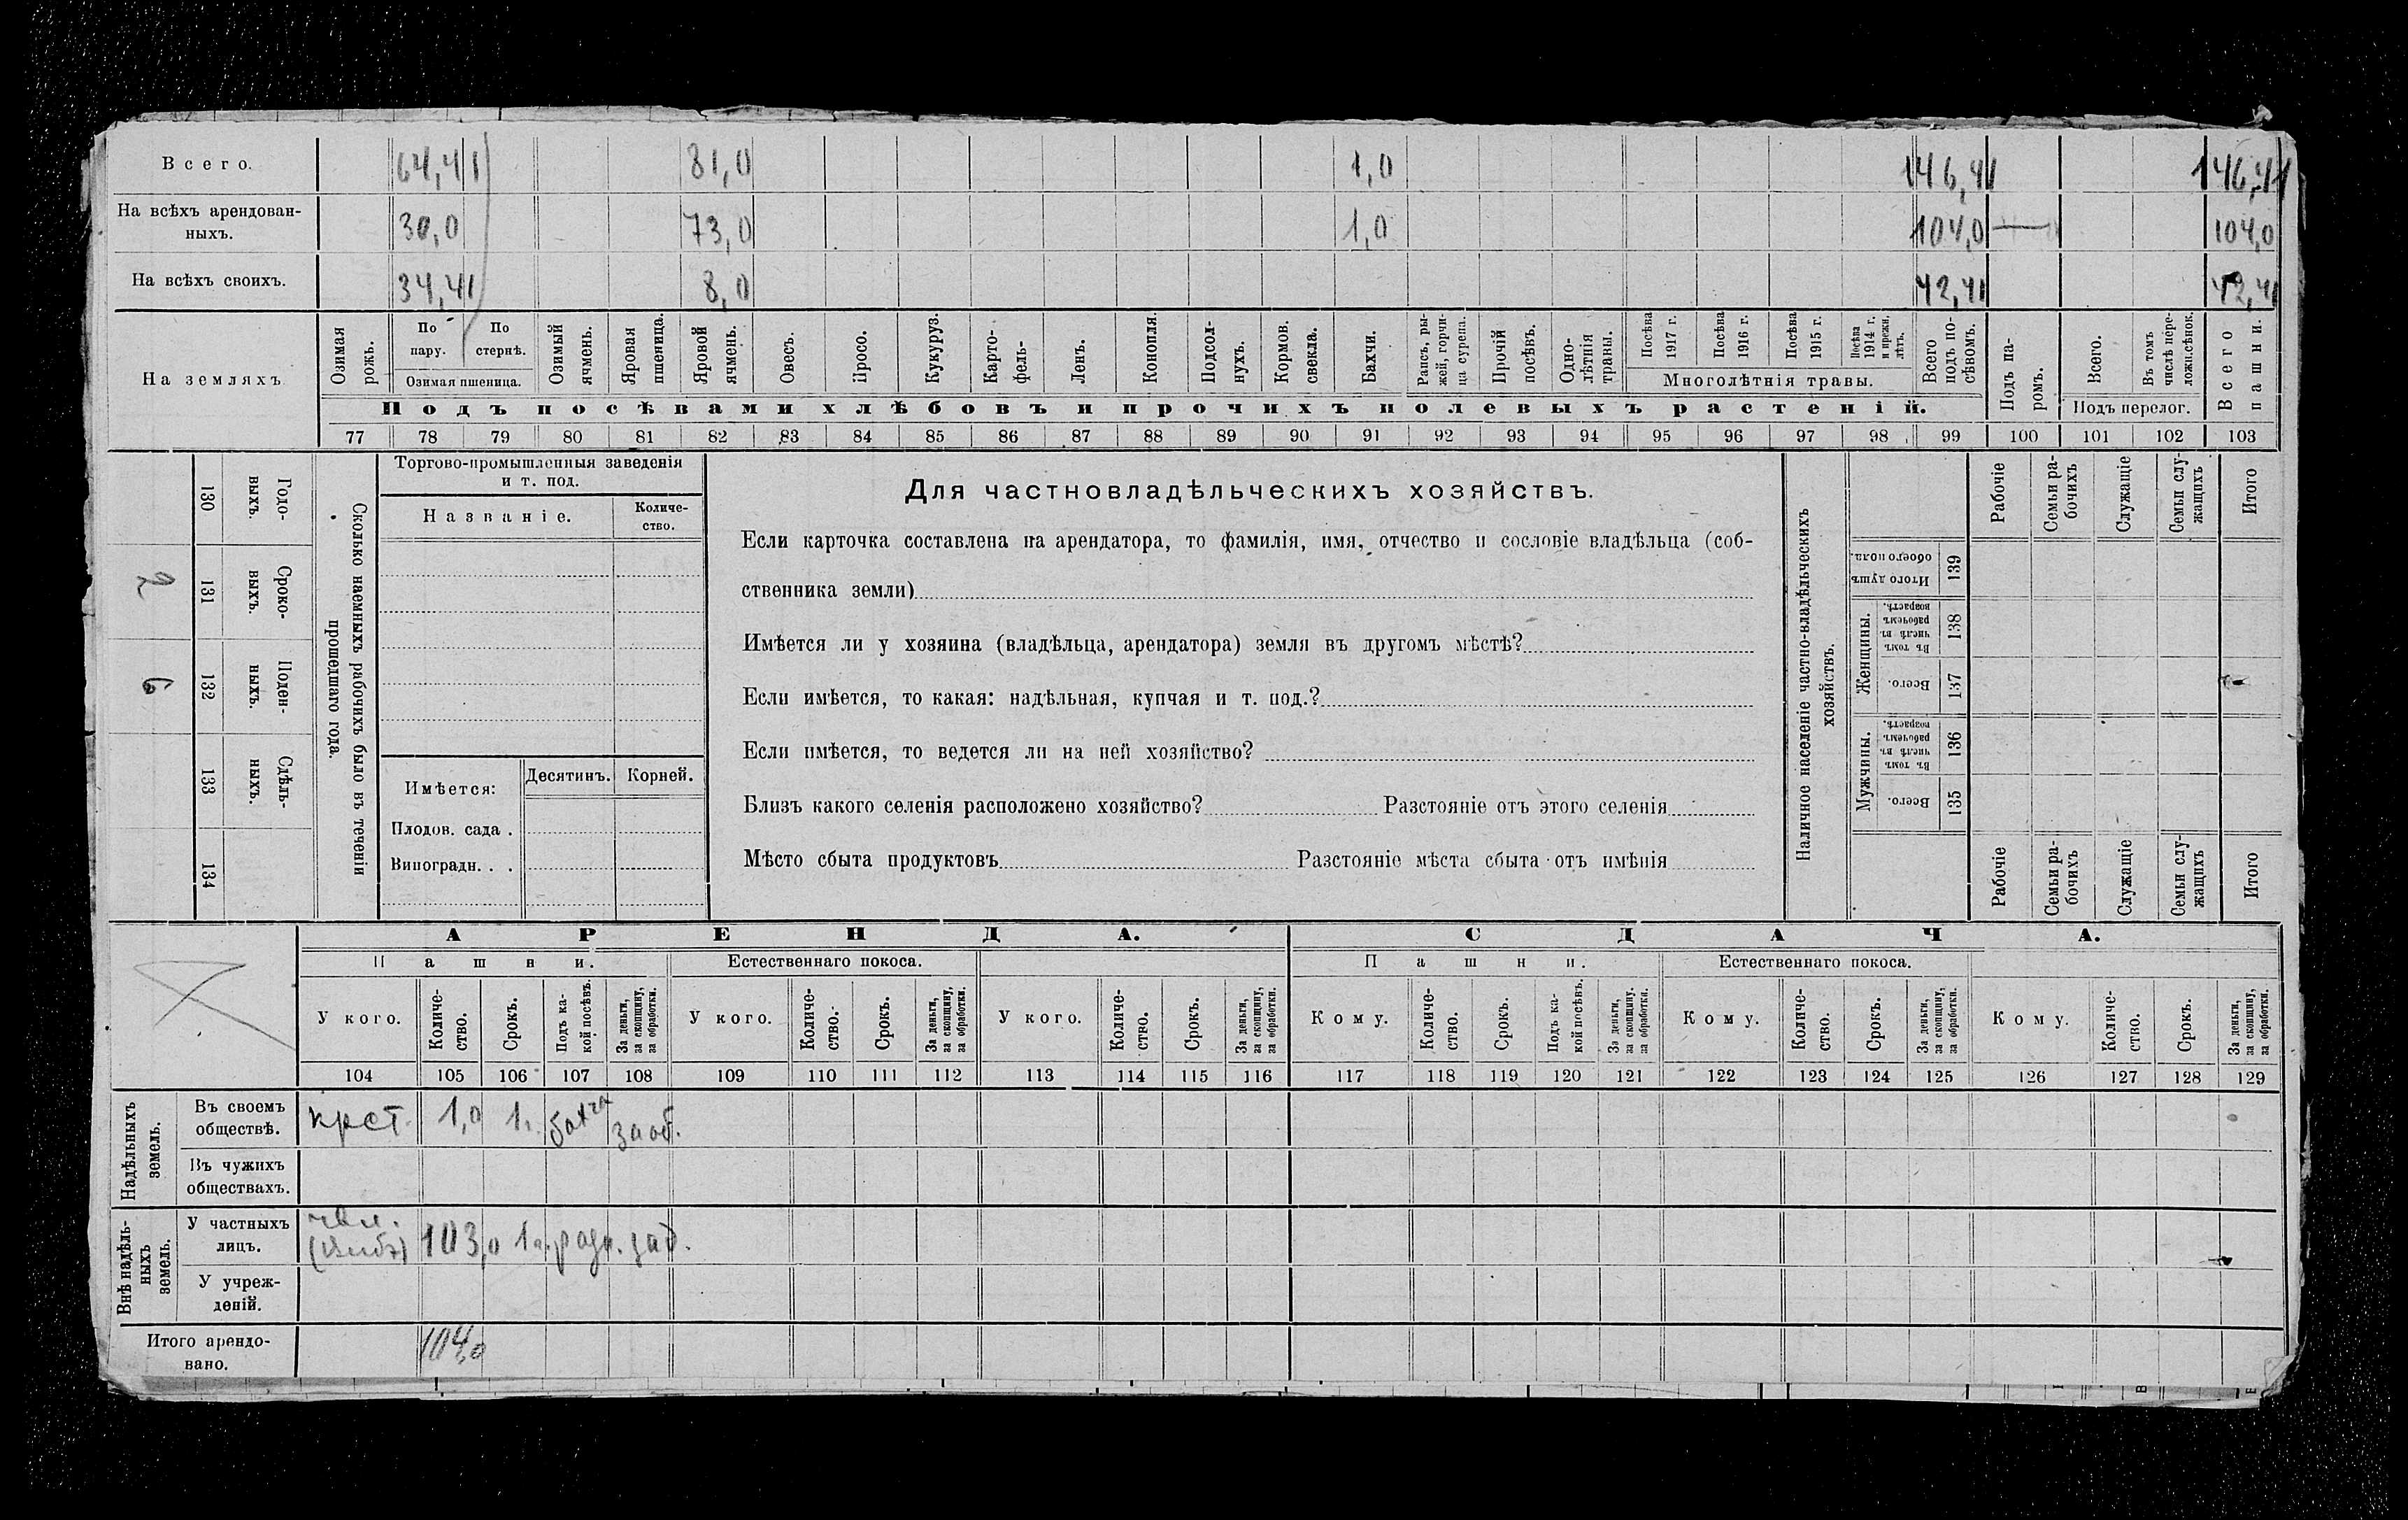 Всего. 64,41 81,0 1,0 146,41 146,41
На всѣхъ арендован-
ныхъ. 30,0 73,0 1,0 104,0 — 104,0
На всѣхъ своихъ. 34,41 8,0 42,41 42,41
На земляхъ
Озимая рожь.
По пару.
По стернѣ.
Озимая пшеница.
Озимый ячмень.
Яровая пшеница.
Яровой ячмень.
Овесъ.
Просо.
Кукуруз.
Карто-
фель-
Ленъ.
Конопля.
Подсол-
нухъ.
Кормов. свекла.
Бахчи.
Рапсъ, ры-
жей, горчи-
ца сурепа.
Прочій посѣвъ.
Одно-
лѣтнія травы.
Посѣва 1917 г.
Посѣва 1916 г.
Посѣва 1915 г.
Посѣва 1914 г. и прежн. лѣтъ.
Многолѣтнія травы.
Всего подъ по-
сѣвомъ.
Подъ па-
ромъ.
Всего.
Въ томъ числѣ пере-
ложн.сѣнок.
Подъ перелог.
Всего пашни.
Подъ посѣвами хлѣбовъ и прочихъ полевыхъ растеній.
77 78 79 80 81 82 83 84 85 86 87 88 89 90 91 92 93 94 95 96 97 98 99 100 101 102 103
130 Годо-
выхъ.
2 131 Сроко-
выхъ.
6 132 Поден-
ныхъ.
133 Сдѣль-
ныхъ.
134
Сколько наемныхъ рабочихъ было въ теченіи
прошедшаго года.
Торгово-промышленныя заведенія
и т. под.
Названіе.
Количе-
ство.
Имѣется: Десятинъ. Корней.
Плодов. сада .
Виноградн. . .
Для частновладѣльческихъ хозяйствъ.
Если карточка составлена на арендатора, то фамилія, имя, отчество и сословіе владѣльца (соб-
ственника земли)
Имѣется ли у хозяина (владѣльца, арендатора) земля въ другомъ мѣстѣ?
Если имѣется, то какая: надѣльная, купчая и т. под.?
Если имѣется, то ведется ли на ней хозяйство?
Близъ какого селенія расположено хозяйство? Разстояніе отъ этого селенія
Мѣсто сбыта продуктовъ Разстояніе мѣста сбыта отъ имѣнія
Наличное населеніе частно-владѣльческихъ
хозяйствъ.
Рабочіе
Семьи ра-
бочихъ
Служащіе
Семьи слу-
жащихъ
Итого
Итого душъ обоего пола. 139
Женщины.
Въ томъ числѣ въ рабочемъ возрастѣ. 138
Всего. 137
Мужчины.
Въ томъ числѣ въ рабочемъ возрастѣ. 136
Всего. 135
Рабочіе
Семьи ра-
бочихъ
Служащіе
Семьи слу-
жащихъ
Итого
АРЕНДА. СДАЧА.
Пашни. Естественнаго покоса. Пашни. Естественнаго покоса.
У кого.
Количе-
ство.
Срокъ.
Подъ ка-
кой посѣвъ.
За деньги, за скопщину, за обработки.
У кого.
Количе-
ство.
Срокъ.
За деньги, за скопщину, за обработки.
У кого.
Количе-
ство.
Срокъ.
За деньги, за скопщину, за обработки.
Кому.
Количе-
ство.
Срокъ.
Подъ ка-
кой посѣвъ.
За деньги, за скопщину. за обработки.
Кому.
Количе-
ство.
Срокъ.
За деньги, за скопщину, за обработки.
Кому.
Количе-
ство.
Срокъ.
За деньги, за скопщину, за обработки.
104 105 106 107 108 109 110 111 112 113 114 115 116 117 118 119 120 121 122 123 124 125 126 127 128 129
Надѣльныхъ земель.
Въ своемъ
обществѣ. крст. 1,0 1г. бахча за об.
Въ чужихъ
обществахъ.
Внѣ надѣль-
ныхъ земель.
У частныхъ
лицъ. 103,0 1г.
У учреж-
деній.
Итого арендо-
вано. 104,0